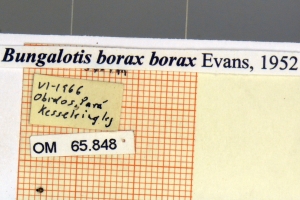 Bungalotis borax borax Evans, 1952
VI-1966
Obidos, Pará
OM 65.848